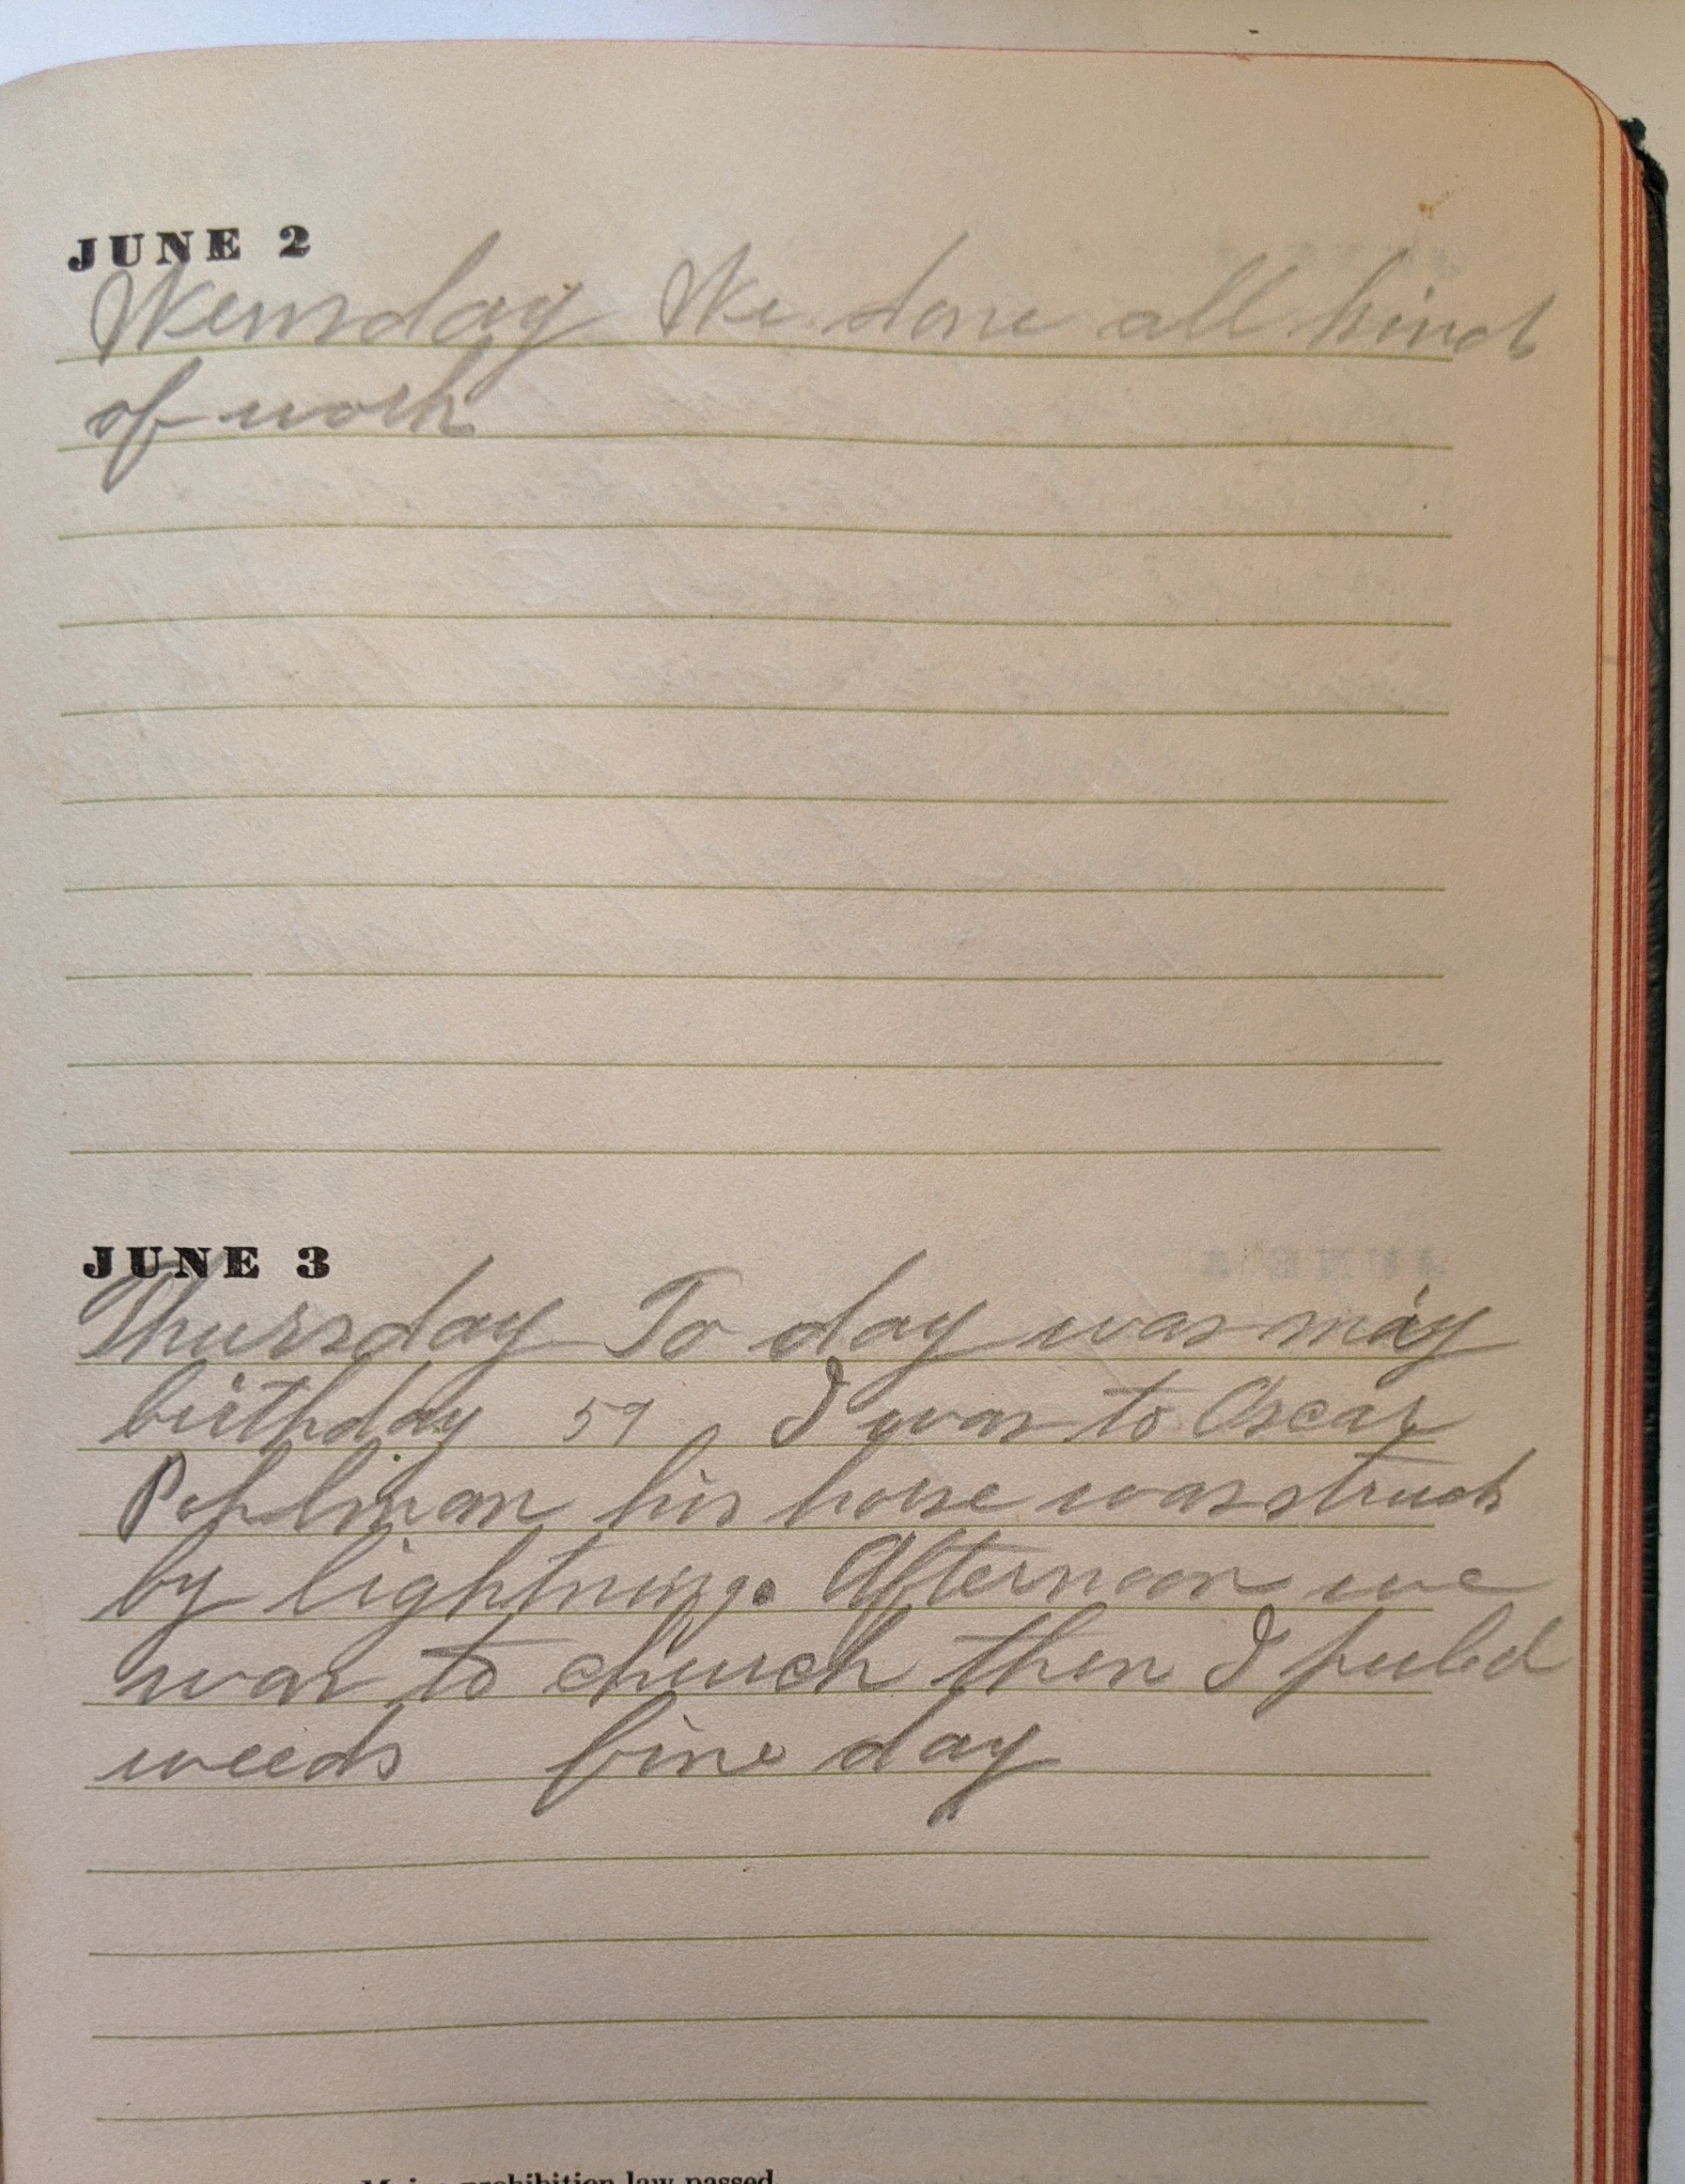 JUNE 2
Wensday We done all kind
of work
JUNE 3
Thursday To day was may
birthday 59 I was to Oscar
Pohlman his horse was struck
by lightning. Afternoon we
was to church then I puled
weeds fine day
prohibition law passed